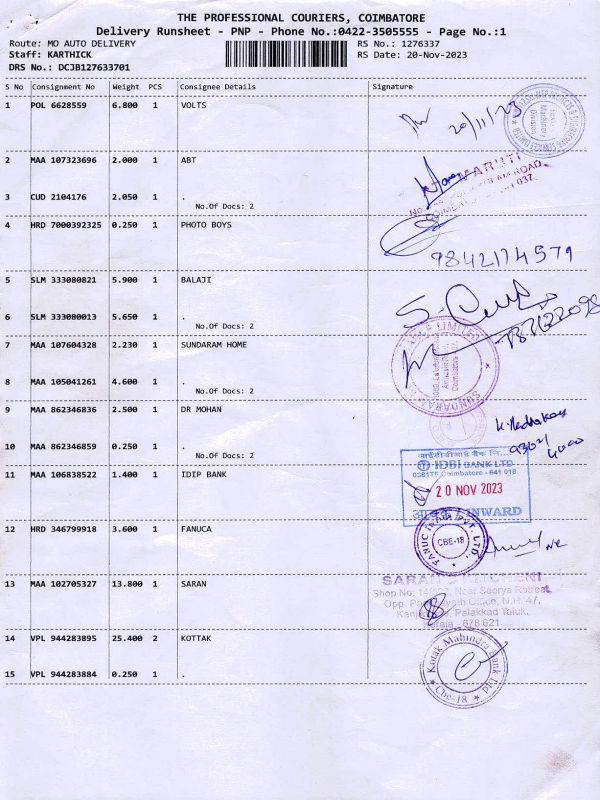 THE PROFESSIONAL COURIERS, COIMBATORE
Delivery Runsheet - PNP - Phone No.:0422-3505555 - Page No.:1
Route: MO AUTO DELIVERY RS No.: 1276337
Staff: KARTHICK RS Date: 20-Nov-2023
DRS No.: DCJB127633701
S No Consignment No Weight PCS Consignee Details Signature
1 POL 6628559 6.800 1 VOLTS
20/11/23
2 MAA 107323696 2.000 1 ABT
MARUTI
3 CUD 2104176 2.050 1 .
No.Of Docs: 2
4 HRD 7000392325 0.250 1 PHOTO BOYS
9842174579
5 SLM 333080821 5.900 1 BALAJI
6 SLM 333080013 5.650 1 .
No.Of Docs: 2
7 MAA 107604328 2.230 1 SUNDARAM HOME
8 MAA 105041261 4.600 1 .
No.Of Docs: 2
9 MAA 862346836 2.500 1 DR MOHAN
10 MAA 862346859 0.250 1 .
No.Of Docs: 2
11 MAA 106838522 1.400 1 IDIP BANK
IDBI BANK LTD.
Coimbatore - 641 018.
20 NOV 2023
INWARD
12 HRD 346799918 3.600 1 FANUCA
FANUC INDIA PVT LTD.
CBE-18
13 MAA 102705327 13.800 1 SARAN
Near Soorya Retreat,
Office, N.H. 47,
Palakkad Taluk,
678 621
14 VPL 944283895 25.400 2 KOTTAK
Kotak Mahindra Bank Ltd
Cbe-18
15 VPL 944283884 0.250 1 .